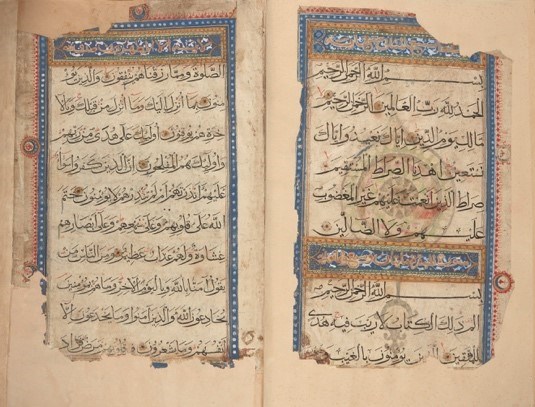 بسم الله الرحمن الرحيم
الحمد لله رب العالمين الرحمن الرحيم
مالك يوم الدين اياك نعبد واياك
نستعين اهدنا الصراط المستقيم
صراط الذين انعمت عليهم غير المغضوب
عليهم ولا الضالين
بسم الله الرحمن الرحيم
الم ذلك الكتاب لا ريب فيه هدى
للمتقين الذين يؤمنون بالغيب
الصلوة ومما رزقناهم ينفقون والذين يؤ
منون بما انزل اليك وما انزل من قبلك وبالا
خرة هم يوقنون اولئك على هدى من ربهم
واولئك هم المفلحون ان الذين كفروا سواء
عليهم ءانذرتهم ام لم تنذرهم لا يؤمنون ختم
الله على قلوبهم وعلى سمعهم وعلى ابصارهم
غشاوة ولهم عذاب عظيم ومن الناس من
يقول امنا بالله وباليوم الاخر وما هم بمؤمنين
يخادعون الله والذين امنوا وما يخدعون الا
انفسهم وما يشعرون في قلوبهم مرض فزاد